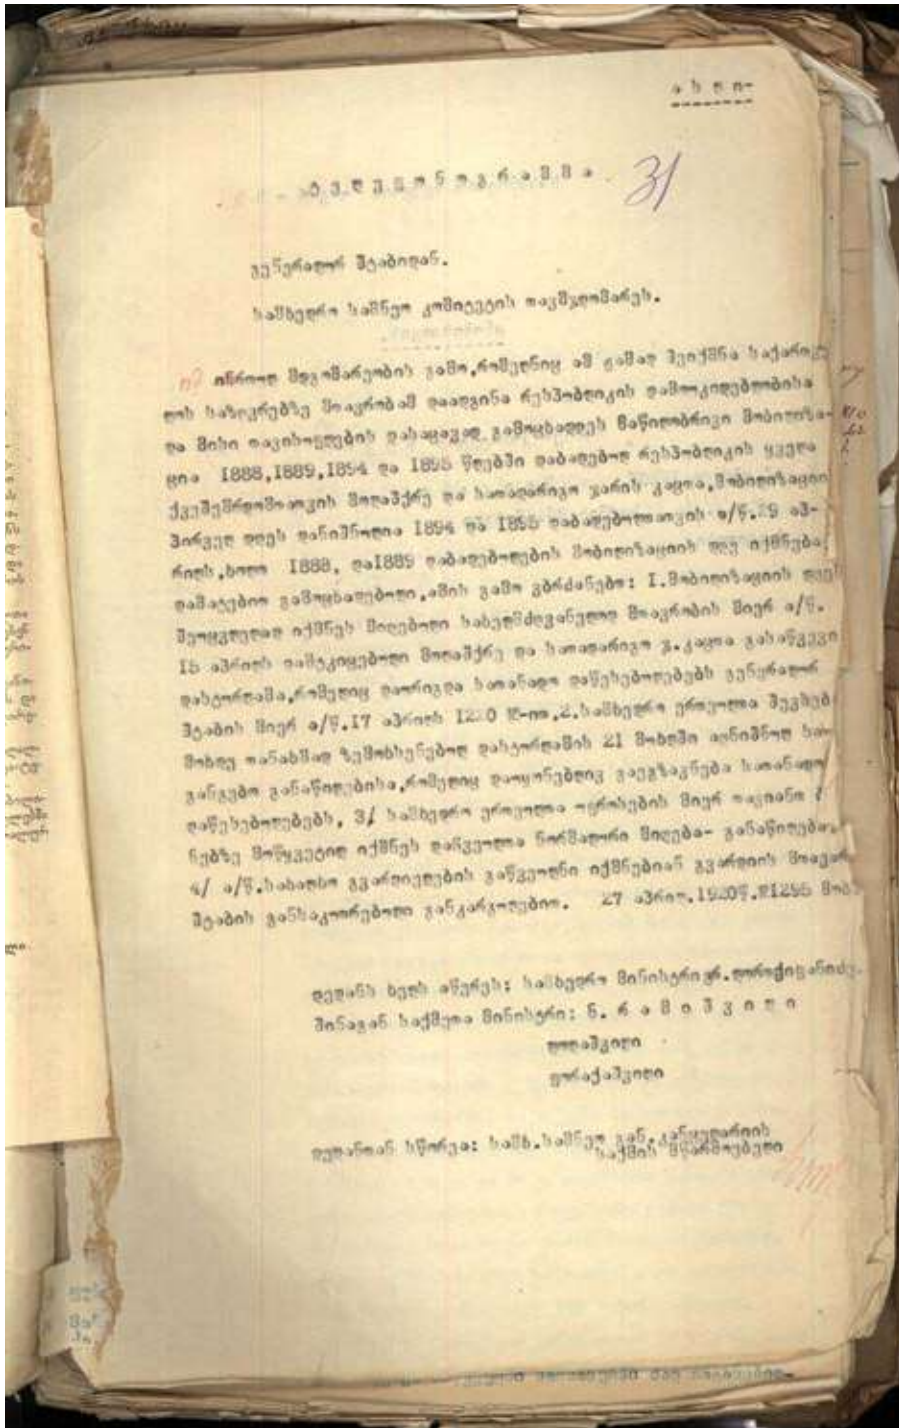 ა ს ლ ი-
ტ ე ლ ე ფ ო ნ ო გ რ ა მ მ ა
31
გენერალურ შტაბიდან.
სამხედრო სამნეო კომიტეტის თავმჯდომარეს.
იმ ინრიულ მდგომარეობის გამო,რომელნიც ამ ჟამად შეიქმნა საქართვე
ლოს საზღვრებზე მთავრობამ დაადგინა რესპუბლიკის დამოუკიდებლობისა
და მისი თავისუფლების დასაცავად გამოცხადდეს ნაწილობრივი მობილიზა-
ცია 1888,1889,1894 და 1895 წლებში დაბადებულ რესპუბლიკის ყველა
ქვეშემრდომთათვის მოლაშქრე და სათადარიგო ჯარის კაცთა,მობილიზაციი
პირველ დღეს დანიშნულია 1894 და 1895 დაბადებულთათვის ა/წ.29 აპ-
რილს,ხოლო 1888, და1889 დაბადებულების მობილიზაციის დღე იქმნება
დამატებით გამოცხადებული,ამის გამო ვბრძანებთ: I.მობილიზაციის დღე
შეუცვლელად იქმნეს მიღებული სახელმძღვანელოდ მთავრობის მიერ ა/წ.
15 აპრილს დამტკიცებული მოლაშქრე და სათადარიგო ჯ.კაცთა გასაწვევი
დასტურლამა,რომელიც დაურიგდა სათანადო დაწესებულებებს გენერალურ
შტაბის მიერ ა/წ.17 აპრილს 1220 №-ით,2.სამხედრო ერთეულთა შევსებ
მოხდე თანახმად ზემოხსენებულ დასტურლამის 21 მუხლში აღნიშნულ სა
განგებო განაწილებისა,რომელიც დაუყონებლივ გაეგზავნება სათანადო
დაწესებულებებს, 3/ სამხედრო ერთეულთა უფროსების მიერ თავიანთ
ნებზე მოწყვეტილ იქმნეს დაწვეულთა ნორმალური მიღება- განაწილება
4/ ა/წ.სახალხო გვარდიელების გაწვეულნი იქმნებიან გვარდიის მთავარ
შტაბის განსაკუთრებული განკარგულებით. 27 აპრილ.1920წ.№1295
დედანს ხელს აწერეს: სამხედრო მინისტრი გრ.ლორთქიფანიძე.
შინაგან საქმეთა მინისტრი: ნ. რ ა მ ი შ ვ ი ლ ი
დედანთან სწორეა: სამხ.სამნეო გან.კანცელარიის
საქმის მწარმოებელი